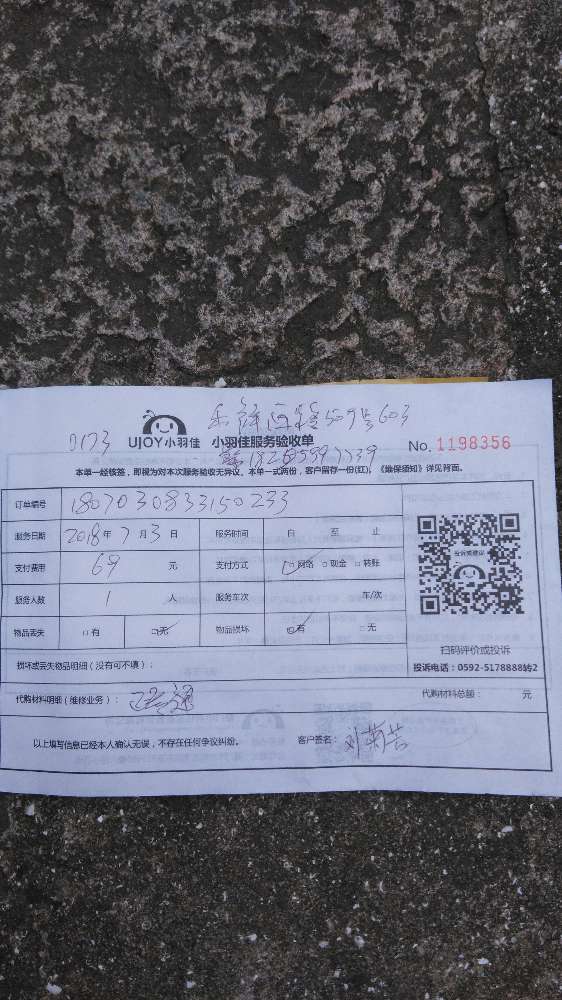 0173
UJOY小羽佳 小羽佳服务验收单
No. 1198356
本单一经核签，即视为对本次服务验收无异议。本单一式两份，客户留存一份(红)。《维保须知》详见背面。
订单编号 1807030833150233
服务日期 2018年7月3日 服务时间 自 至 止
支付费用 69 元 支付方式 □网络 □现金 □转账
服务人数 1 人 服务车次 车/次
物品丢失 □有 □无 物品损坏 □有 □无
投诉或建议
扫码评价或投诉
投诉电话：0592-5178888转2
损坏或丢失物品明细（没有可不填）：
代购材料明细（维修业务）： 代购材料总额： 元
以上填写信息已经本人确认无误，不存在任何争议纠纷。 客户签名：